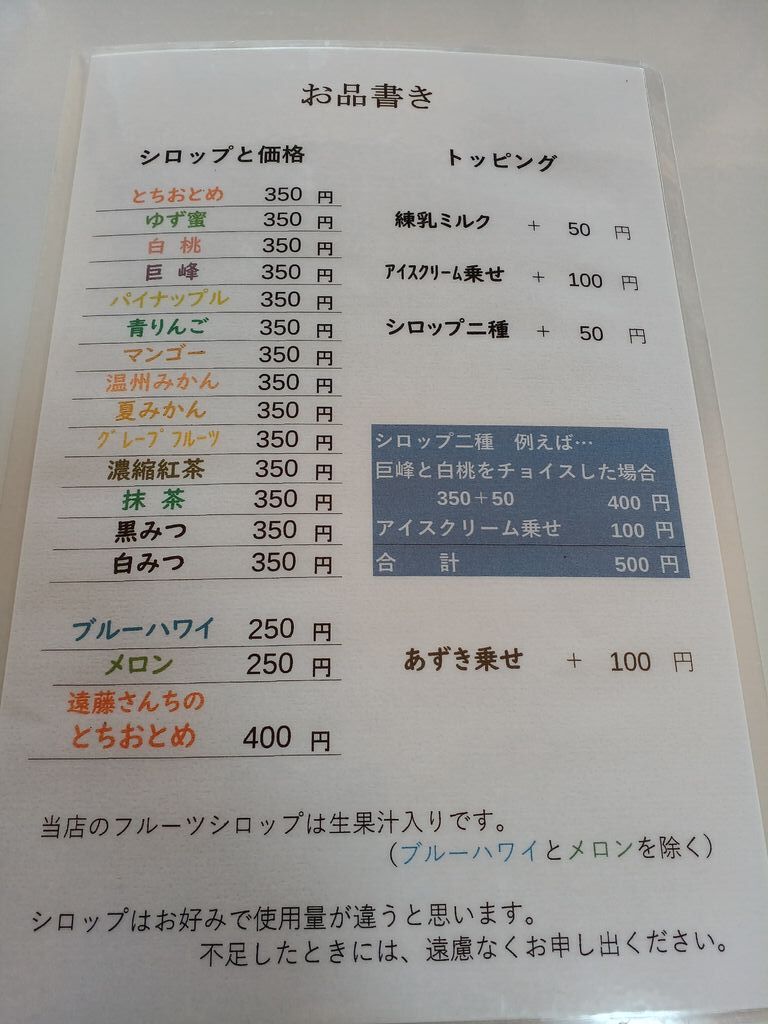 お品書き
シロップと価格
とちおとめ 350 円
ゆず蜜 350 円
白 桃 350 円
巨 峰 350 円
パイナップル 350 円
青りんご 350 円
マンゴー 350 円
温州みかん 350 円
夏みかん 350 円
グレープフルーツ 350 円
濃縮紅茶 350 円
抹 茶 350 円
黒みつ 350 円
白みつ 350 円
ブルーハワイ 250 円
メロン 250 円
遠藤さんちの
とちおとめ 400 円
トッピング
練乳ミルク + 50 円
アイスクリーム乗せ + 100 円
シロップ二種 + 50 円
シロップ二種 例えば…
巨峰と白桃をチョイスした場合
350+50 400 円
アイスクリーム乗せ 100 円
合 計 500 円
あずき乗せ + 100 円
当店のフルーツシロップは生果汁入りです。
(ブルーハワイとメロンを除く)
シロップはお好みで使用量が違うと思います。
不足したときには、遠慮なくお申し出ください。